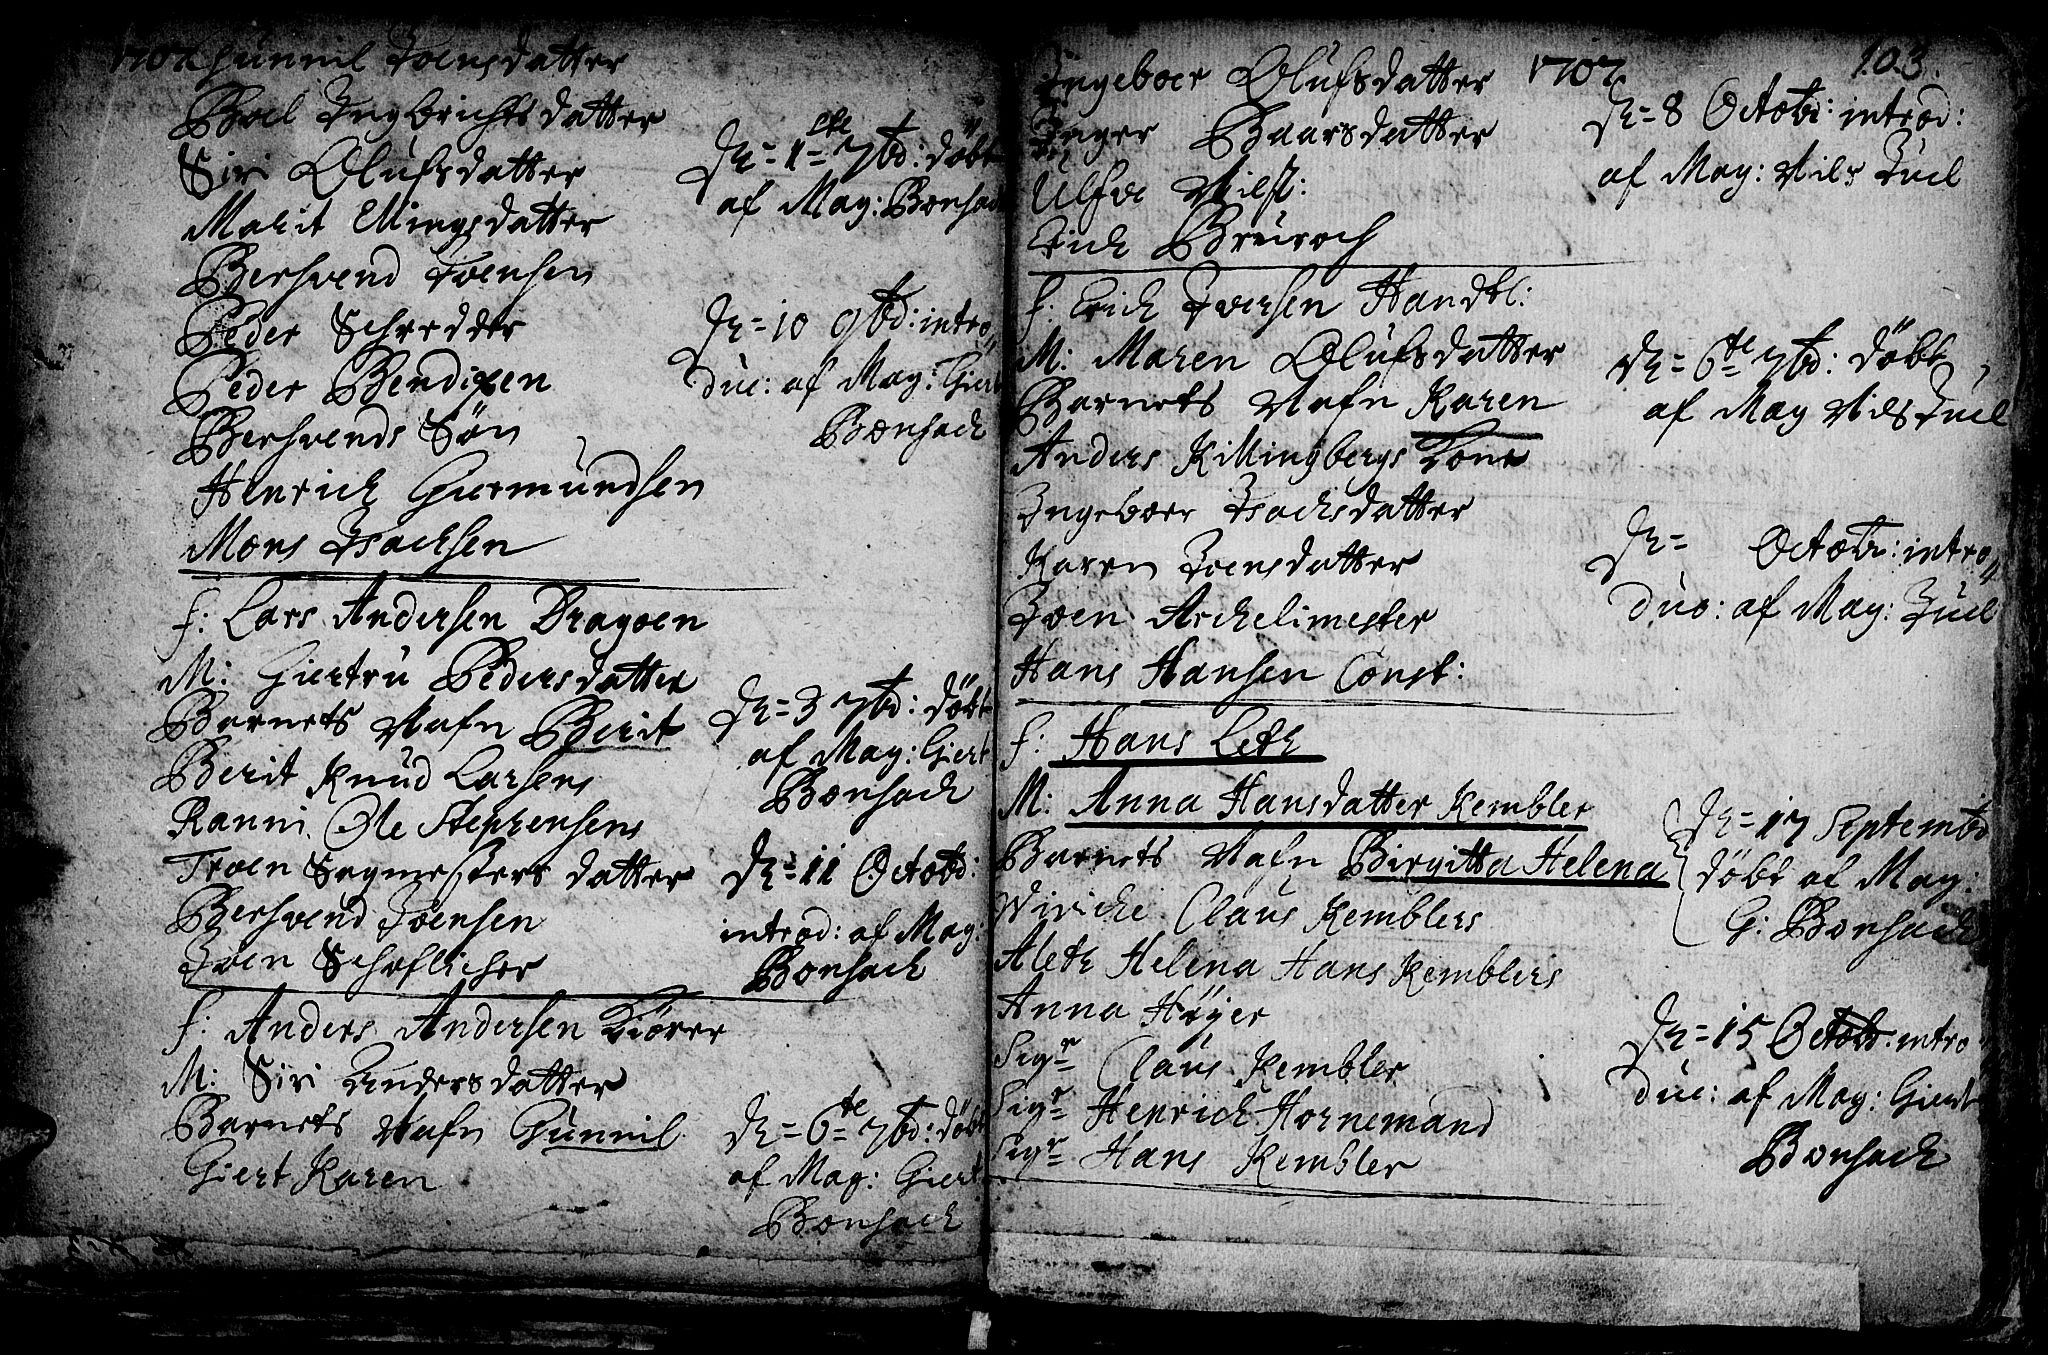 1707 Gunnil Joensdatter
Boel Ingbrichtsdatter
Siri Olufsdatter
Marit Ellingsdatter
Bersvend Joensen
Peder Schredder
Peder Bendixen
Bersvends Sön
Henrich Giermundsen
Mons Isachsen
Dn= 1ste 7bd: döbt
af Mag: Bonsach
Dn= 10 9bd: intro
duc: af Mag: Giert
Bonsach
f: Lars Andersen Dragoen
M: Giertru Pedersdatter
Barnets Nafn Berit
Berit Knud Larsens
Ranni Ole Stephensens
Troen Sagmesters datter
Bersvend Joensen
Joen Schoflicher
Dn= 3 7bd: döbt
af Mag: Giert
Bonsach
Dn= 11 Octobd:
introd: af Mag:
Bonsach
f: Anders Andersen Kiörer
M: Siri Andersdatter
Barnets Nafn Gunnil
Giert Karen
Dn= 6te 7bd: döbt
af Mag: Giert
Bonsach
1707
103.
Ingeboer Olufsdatter
Inger Baarsdatter
Ulfve Nilss:
Erich Bruroch
Dn= 8 Octobr: introd:
af Mag: Nils Juel
f: Erich Iversen Handtl:
M: Maren Olufsdatter
Barnets Nafn Karen
Anders Killingbergs Kone
Ingeboer Isachsdatter
Karen Joensdatter
Joen Archelimester
Hans Hansen Const:
Dn= 6te 7bd: döbt
af Mag Nils Juel
Dn= Octobr: intro
duc: af Mag: Juel
f: Hans Leth
M: Anna Hansdatter Kembler
Barnets Nafn Birgitta Helena
Wiviche Claus Kemblers
Aleth Helena Hans Kemblers
Anna Høyer
Sigr Claus Kembler
Sigr Henrich Hornemand
Sigr Hans Kembler
Dn= 17 Septembd
döbt af Mag:
G: Bonsach
Dn= 15 Octobr: intro
duc: af Mag: Giert
Bonsach